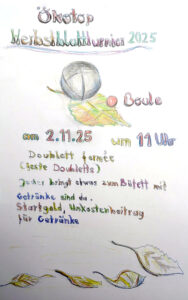 Ökotop
Herbstblattturnier 2025
Boule
am 2.11.25 um 11 Uhr
Doublett formée
(feste Doubletts)
Jeder bringt etwas zum Büfett mit
Getränke sind da.
Startgeld, Unkostenbeitrag
für Getränke